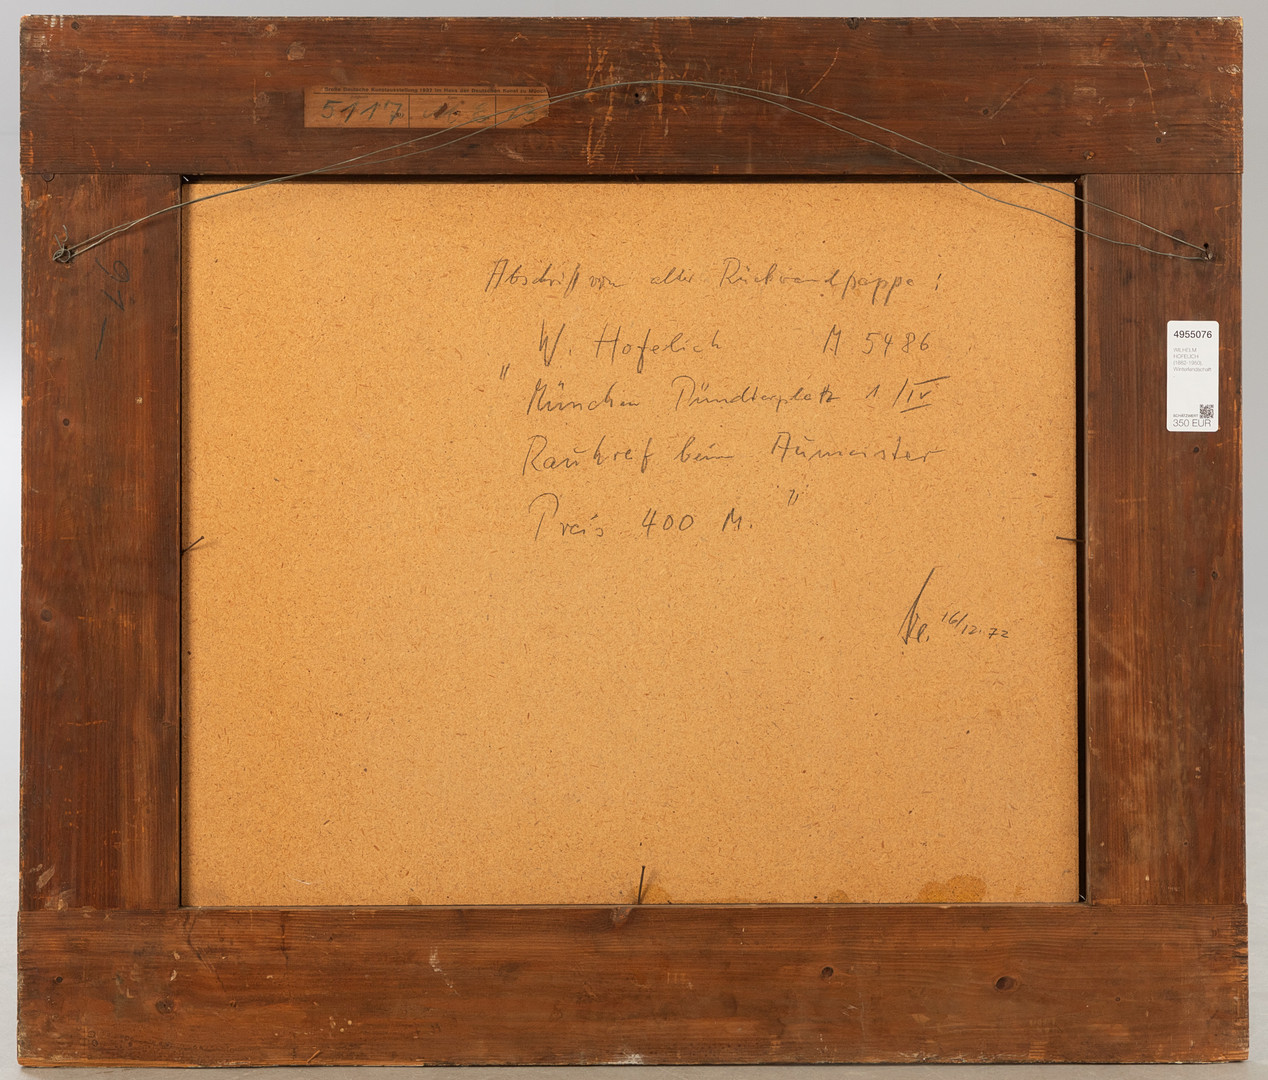 Große Deutsche Kunstausstellung 1937 im Haus der Deutschen Kunst zu
5117
16
Abschrift von alter Rückwandpappe:
W. Hoferlich M 5486
"München Pündterplatz 1/IV
Rauhreif beim Aumeister
Preis 400 M. "
16/12.72
4955076
WILHELM
HOFELICH
(1882-1950)
Winterlandschaft
SCHÄTZWERT
350 EUR